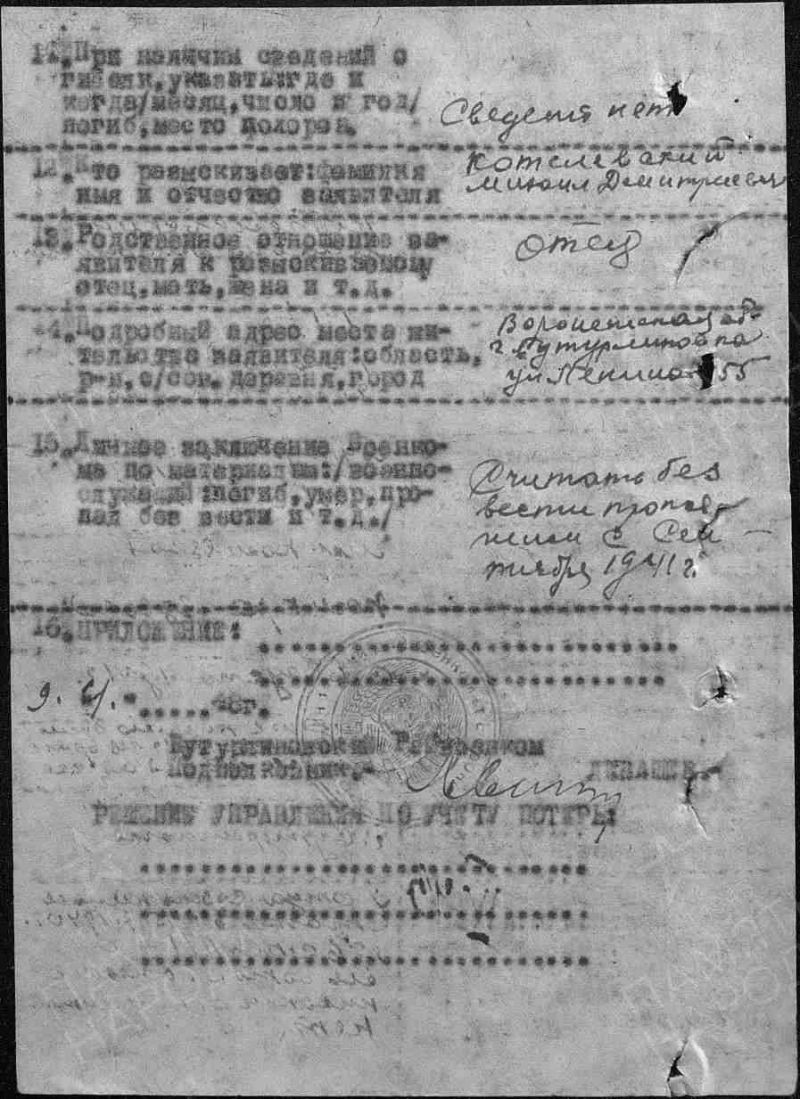 11. При наличии сведений о
гибели, указать: где и
когда/месяц, число и год/
погиб, место похорон.
Сведений нет
12. Кто разыскивает: фамилия
имя и отчество заявителя
Котелевский
Михаил Дмитриевич
13. Родственное отношение за-
явителя к разыскиваемому
отец, мать, жена и т.д.
отец
14. Подробный адрес места жи-
тельства заявителя: область,
р-н, с/сов. деревня, город
Воронежская об.
г. Бутурлиновка
ул Ленина 55
15. Личное заключение Военко-
ма по материалам:/военно-
служащий: погиб, умер, про-
пал без вести и т.д./
Считать без
вести пропав-
шим с Сен-
тября 1941 г.
16. ПРИЛОЖЕНИЕ:
9. 4. 46г.
Бутурлиновский Райвоенком
Подполковник
РЕШЕНИЕ УПРАВЛЕНИЯ ПО УЧЕТУ ПОТЕРЬ